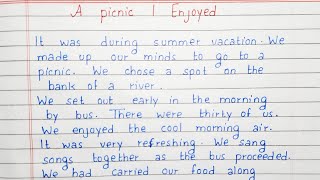 A picnic I Enjoyed
It was during summer vacation. We
made up our minds to go to a
picnic. We chose a spot on the
bank of a river.
We set out early in the morning
by bus. There were thirty of us.
We enjoyed the cool morning air.
It was very refreshing. We sang
songs together as the bus proceeded.
We had carried our food along